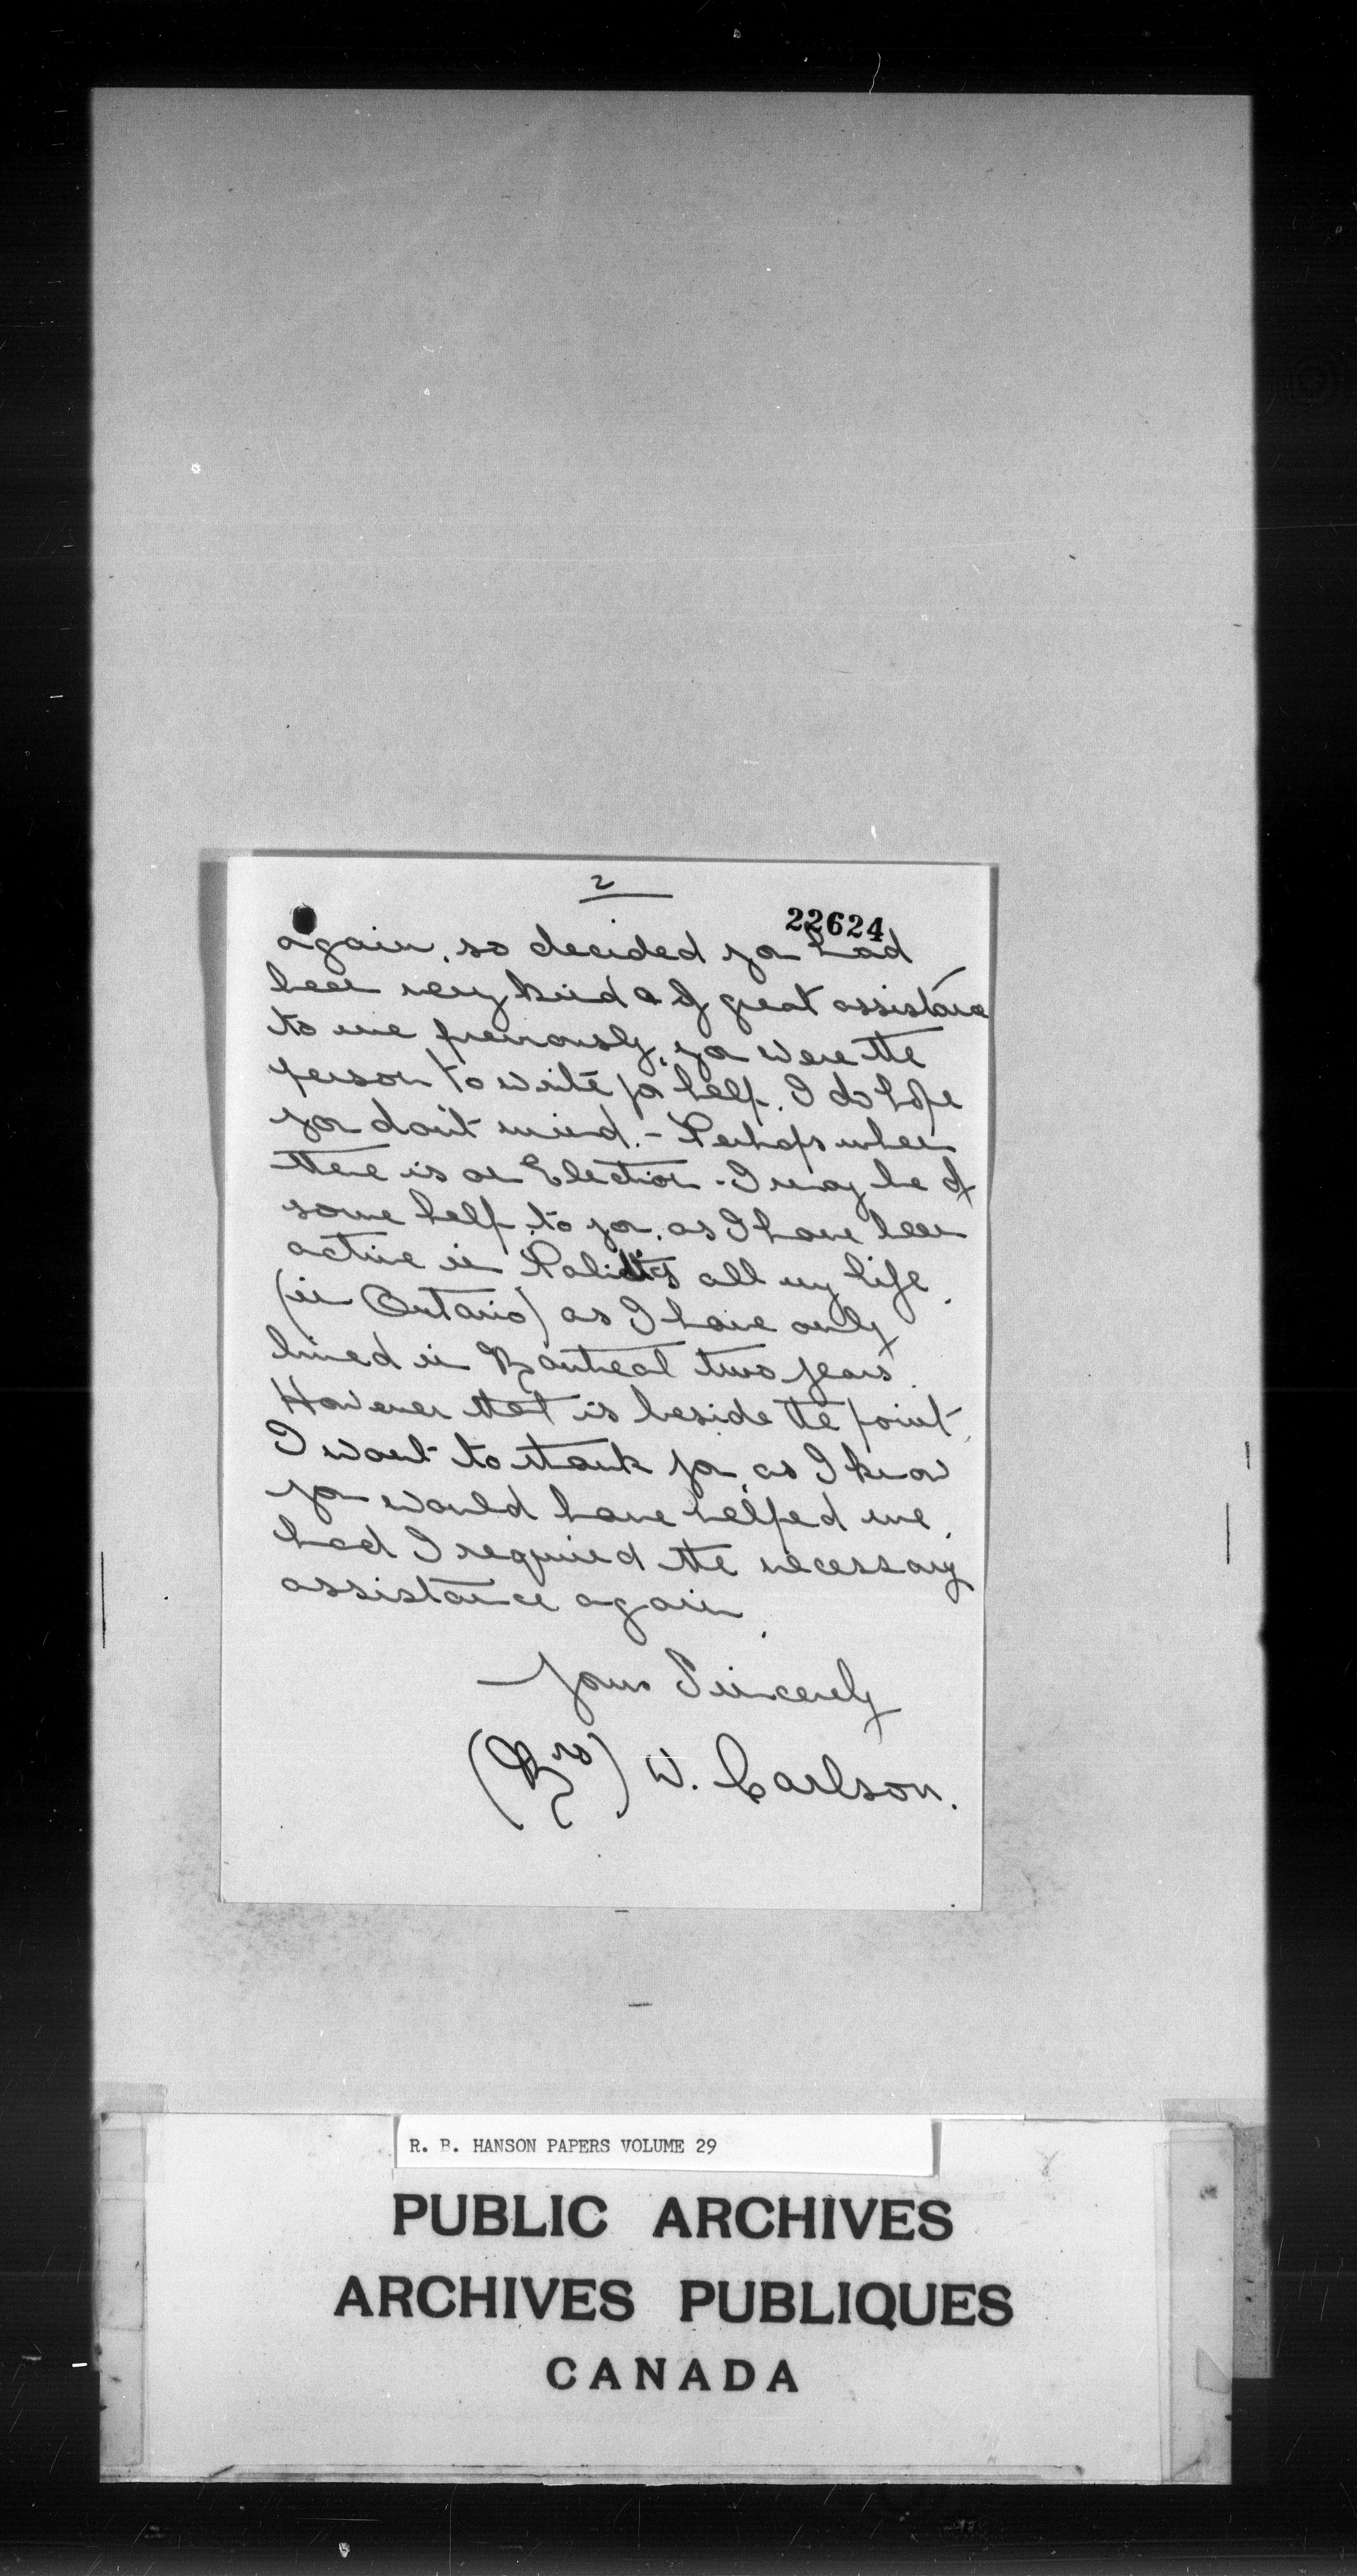 2
22624
again, so decided you had
been very kind & of great assistance
to me previously, you were the
person to write for help. I do hope
you don't mind. - Perhaps when
there is an Election - I may be of
some help to you, as I have been
active in Politics all my life
(in Ontario) as I have only
lived in Montreal two years.
However that is beside the point,
I want to thank you, as I know
you would have helped me,
had I required the necessary
assistance again.
Yours Sincerely
(Mrs) W. Carlson.
R. B. HANSON PAPERS VOLUME 29
PUBLIC ARCHIVES
ARCHIVES PUBLIQUES
CANADA